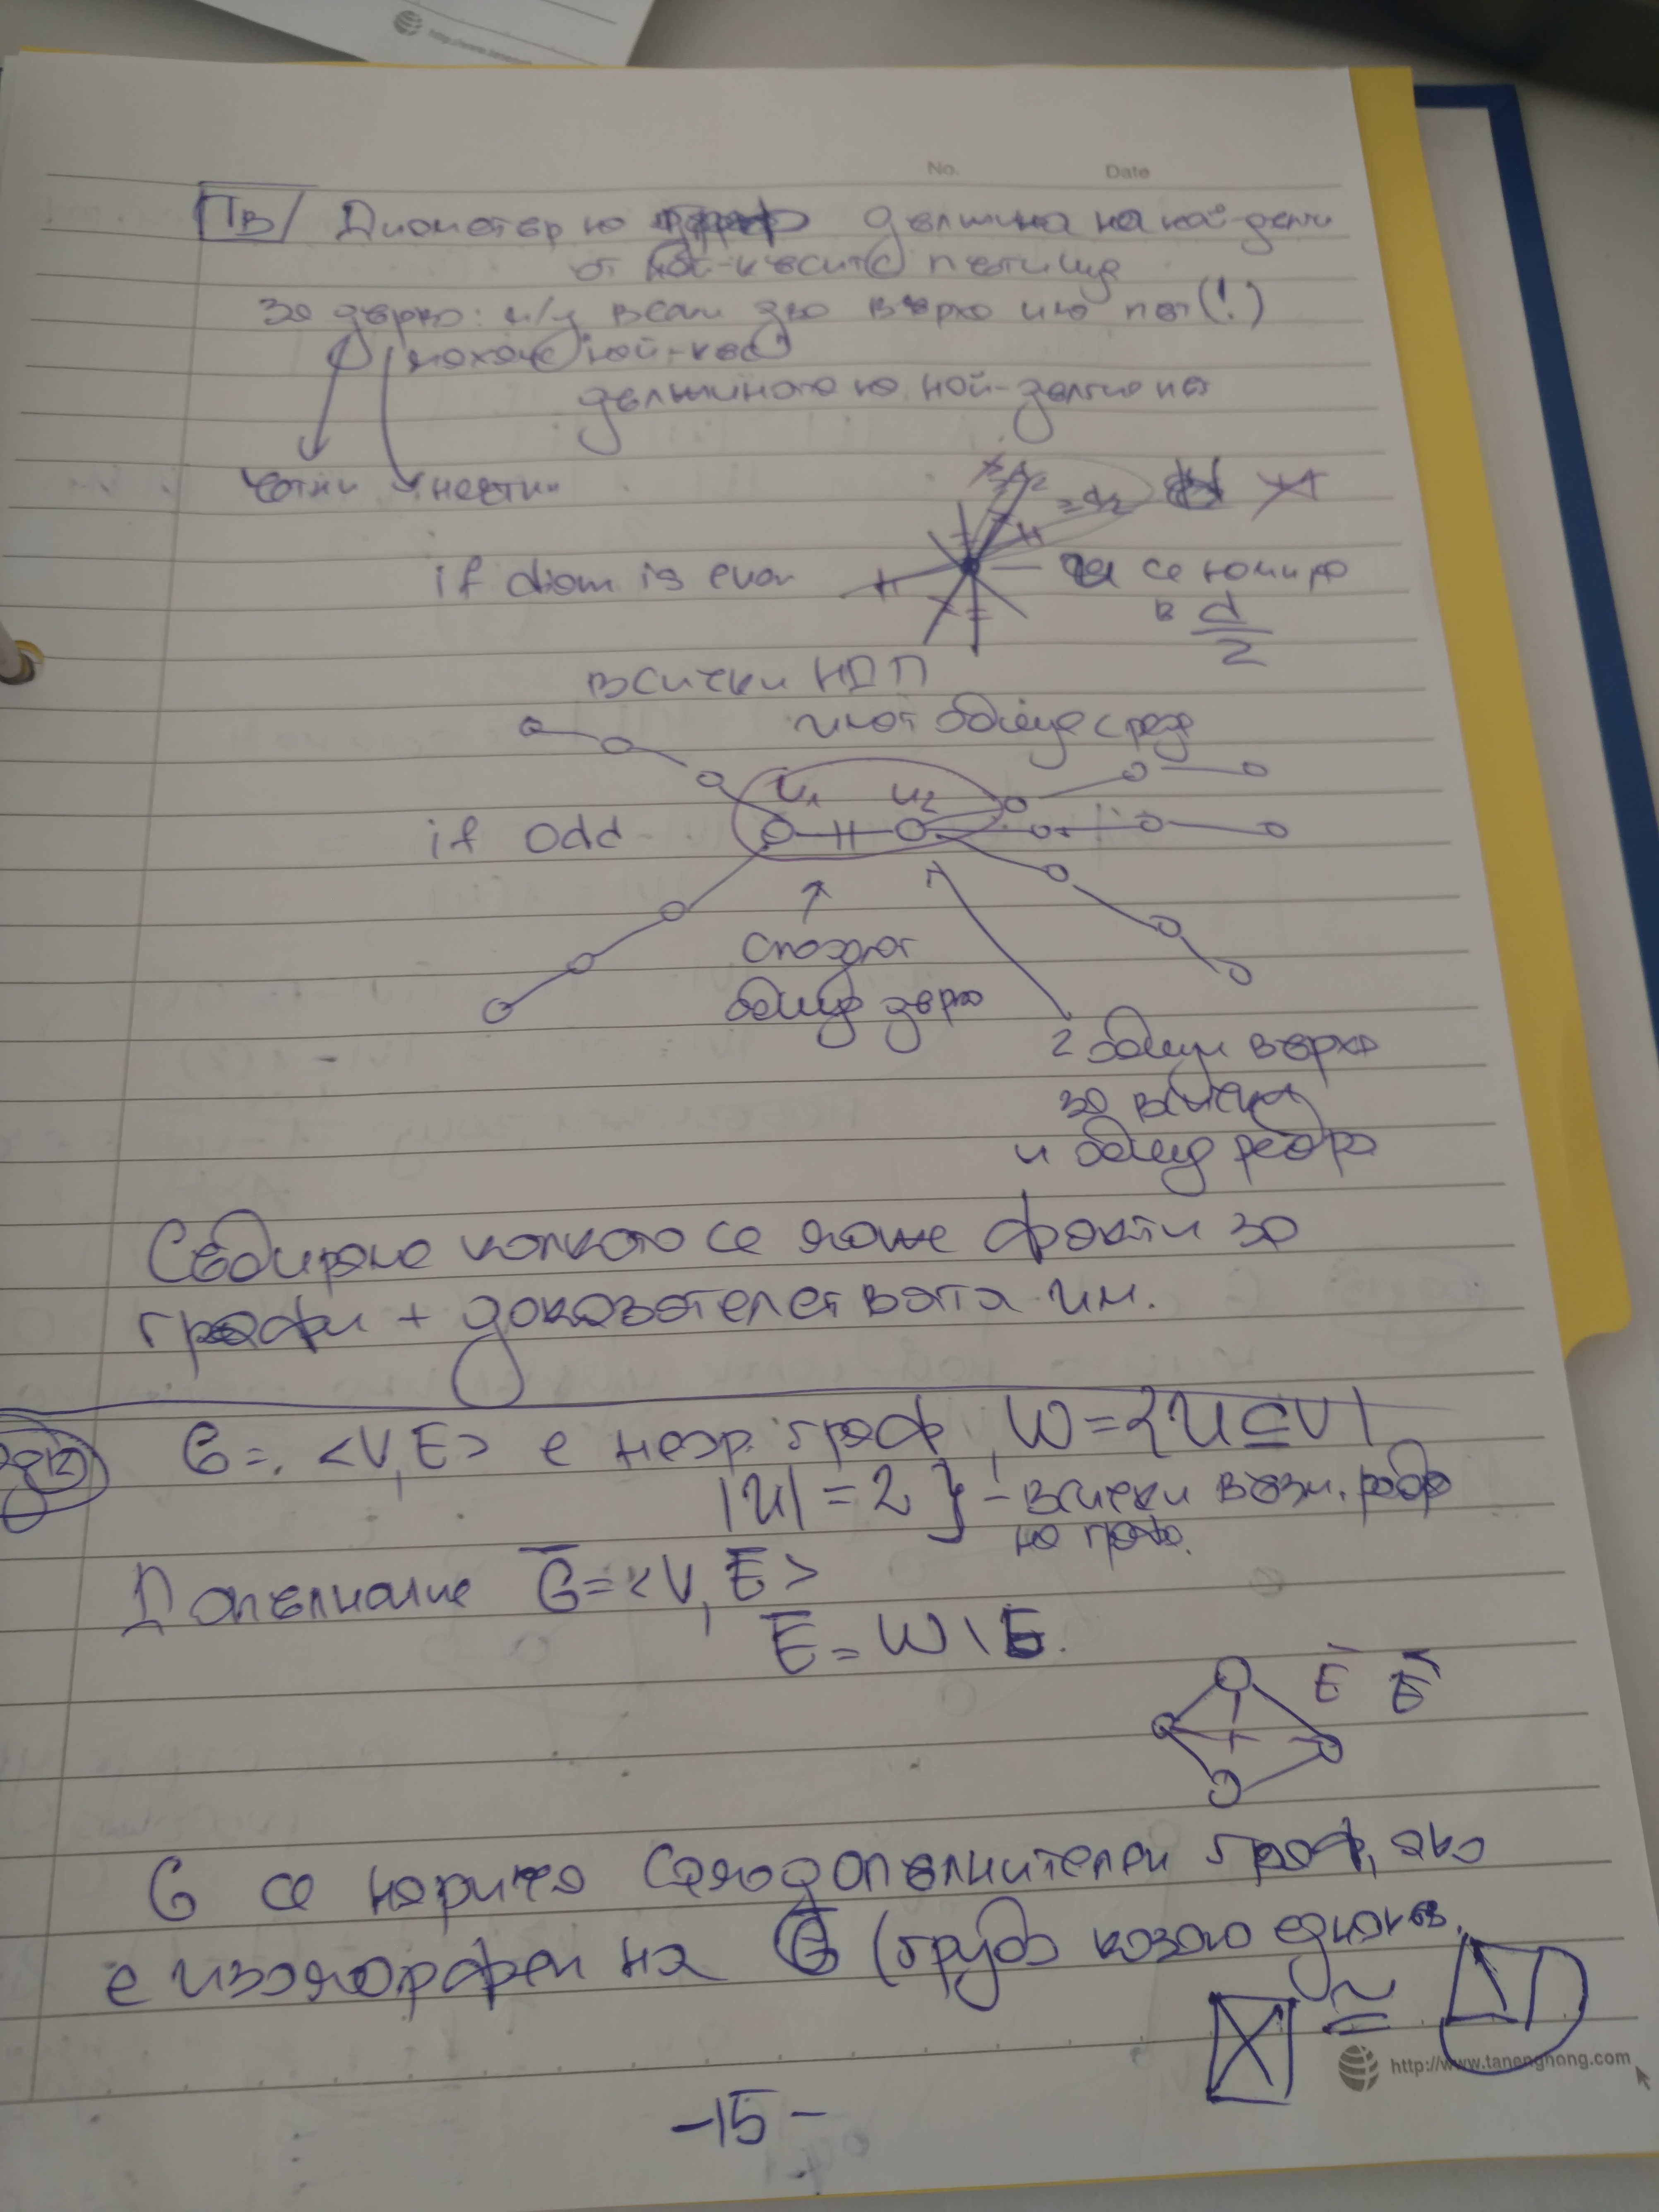 No. Date
Тв Диаметър на дължина на най-дълги
от най-късите пътища
За дърво: м/у всеки два върха има път (!)
махаме най-къс
дължината на най-дългия път
четни нечетни
= d/2
if diam is even
да се намира
в d/2
всички НДП
имат общ среда
u1 u2
if odd
споделят
общо ребро
2 общи върха
за всички
и общо ребро
Събираме колкото се може факти за
графи + доказателствата им.
G = <V, E> е неор. граф, W = {U ⊆ V |
|U| = 2 } - всички възм. ребра
на граф.
Допълнение G̅ = <V, E̅>
E̅ = W \ E.
E E̅
G се нарича самодопълнителен граф, ако
е изоморфен на G̅ (грубо казано еднакв.
≅
http://www.tanenghong.com
-15-